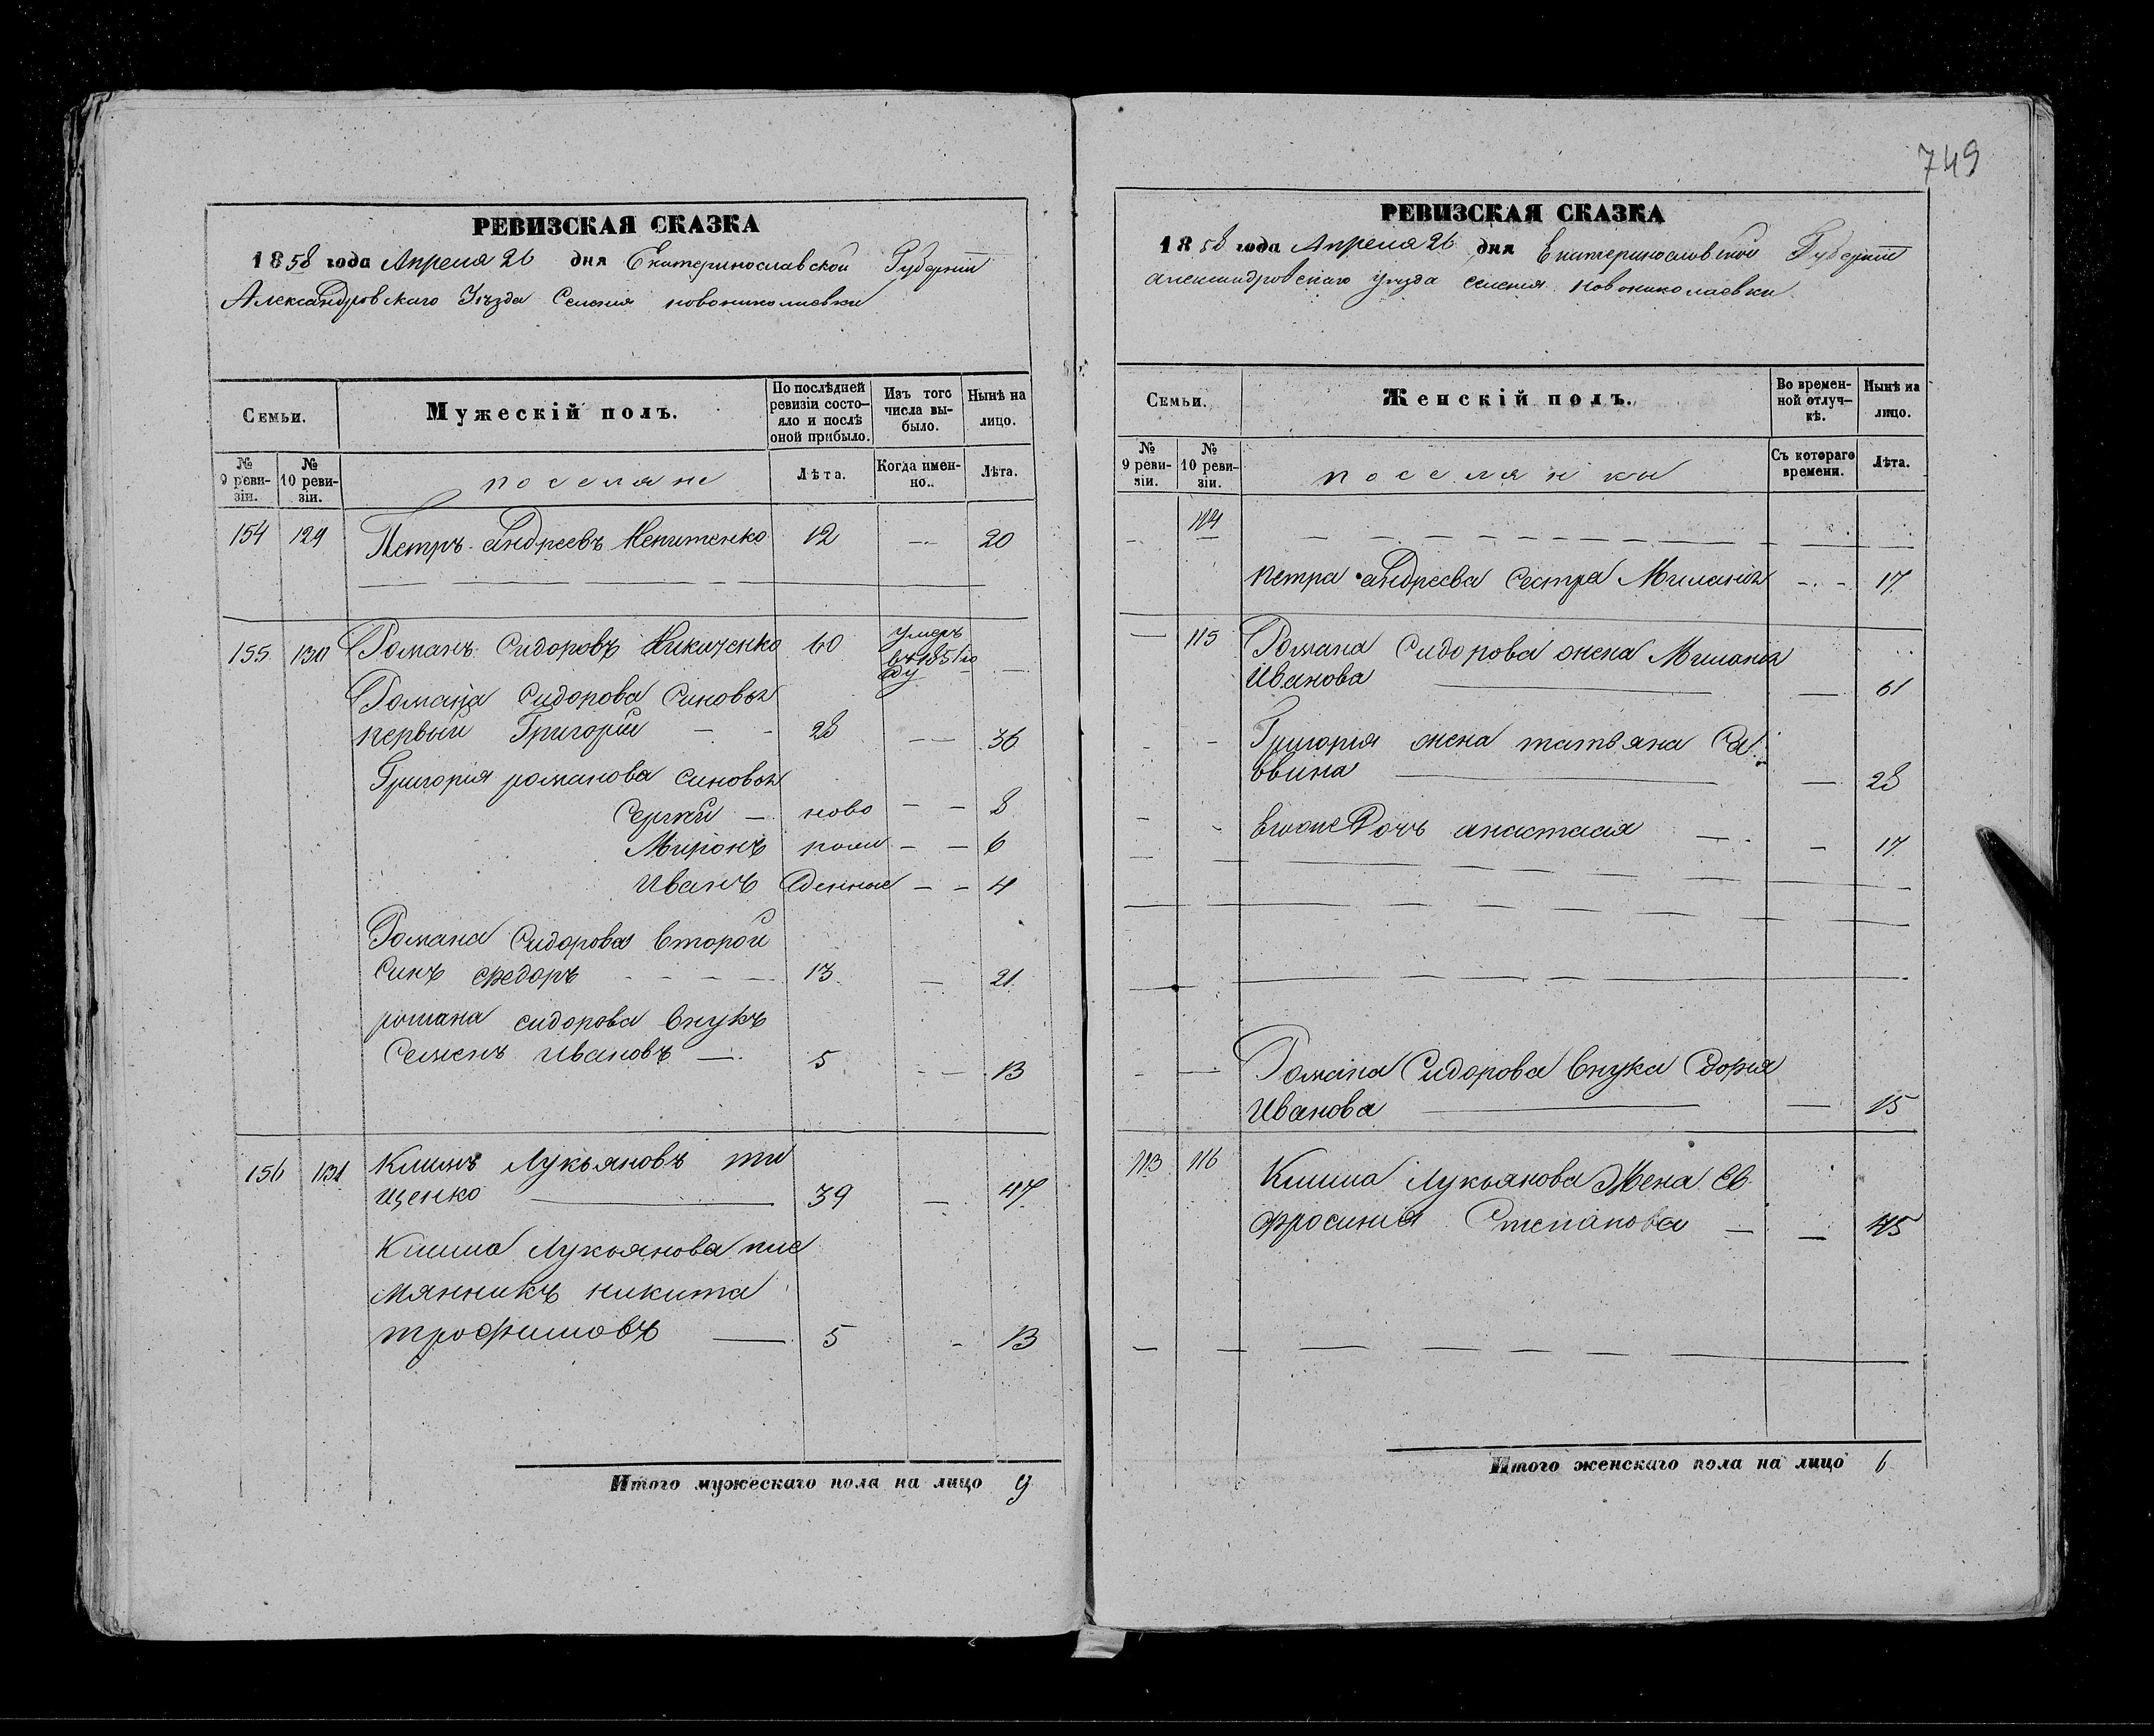 749
РЕВИЗСКАЯ СКАЗКА
1858 года Апреля 26 дня Екатеринославской Губернiи
Александровскаго Уѣзда Селенiя новониколаевки
Семьи.
Мужескiй полъ.
По послѣдней ревизiи состо-
яло и послѣ оной прибыло.
Изъ того числа вы-
было.
Нынѣ на лицо.
№ 9 реви-
зiи.
№ 10 реви-
зiи.
поселяне
Лѣта.
Когда имен-
но.
Лѣта.
154 129 Петръ андреевъ 12 — 20
155 130 Романъ Сидоровъ Никиченко 60 умеръ
въ 1851 го
ду —
Романа Сидорова Синовья
первый Григорiй — - 28 — — 36
Григорiя романова Синовья
Сергѣй — ново — — 8
Миронъ рож — — 6
Иванъ денные — — 4
Романа Сидорова Второй
Синъ Федоръ - - - - 13 — 21
романа сидорова Внукъ
Семенъ ивановъ — 5 - — 13
156 131 Климъ Лукьяновъ ти
щенко — 39 — 47
Клима Лукьянова пле
мянникъ никита
трофимовъ — 5 - 13
Итого мужескаго пола на лицо 9
РЕВИЗСКАЯ СКАЗКА
1858 года Апреля 26 дня Екатеринославской Губернiи
александровскаго уѣзда селенiя новониколаевки
Семьи.
Женскiй полъ.
Во времен-
ной отлуч-
кѣ.
Нынѣ на лицо.
№ 9 реви-
зiи.
№ 10 реви-
зiи.
поселянки
Съ котораго времени.
Лѣта.
- 114
петра андреева Сестра Миланiя - - 17
— 115 Романа Сидорова жена Миланья
Иванова — — 61
- - Григорiя жена татьяна Са
ввина — — 28
- - ... дочь анастасия — - 17
- — Романа Сидорова Внука Софiя
Иванова — — 15
113 116 Клима Лукьянова Жена Ев
фросинiя Степанова — — 45
Итого женскаго пола на лицо 6